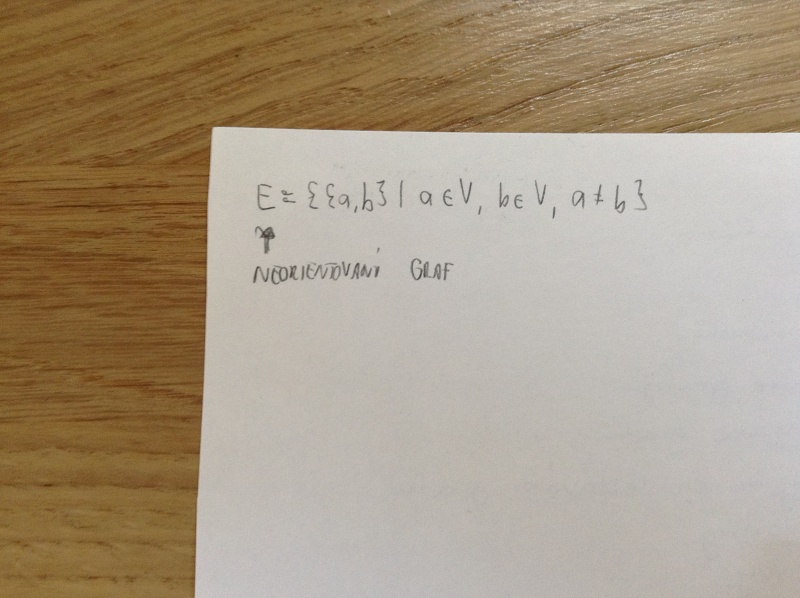 E = {{a,b} | a ∈ V, b ∈ V, a ≠ b}
↑
NEORIENTOVANÍ GRAF